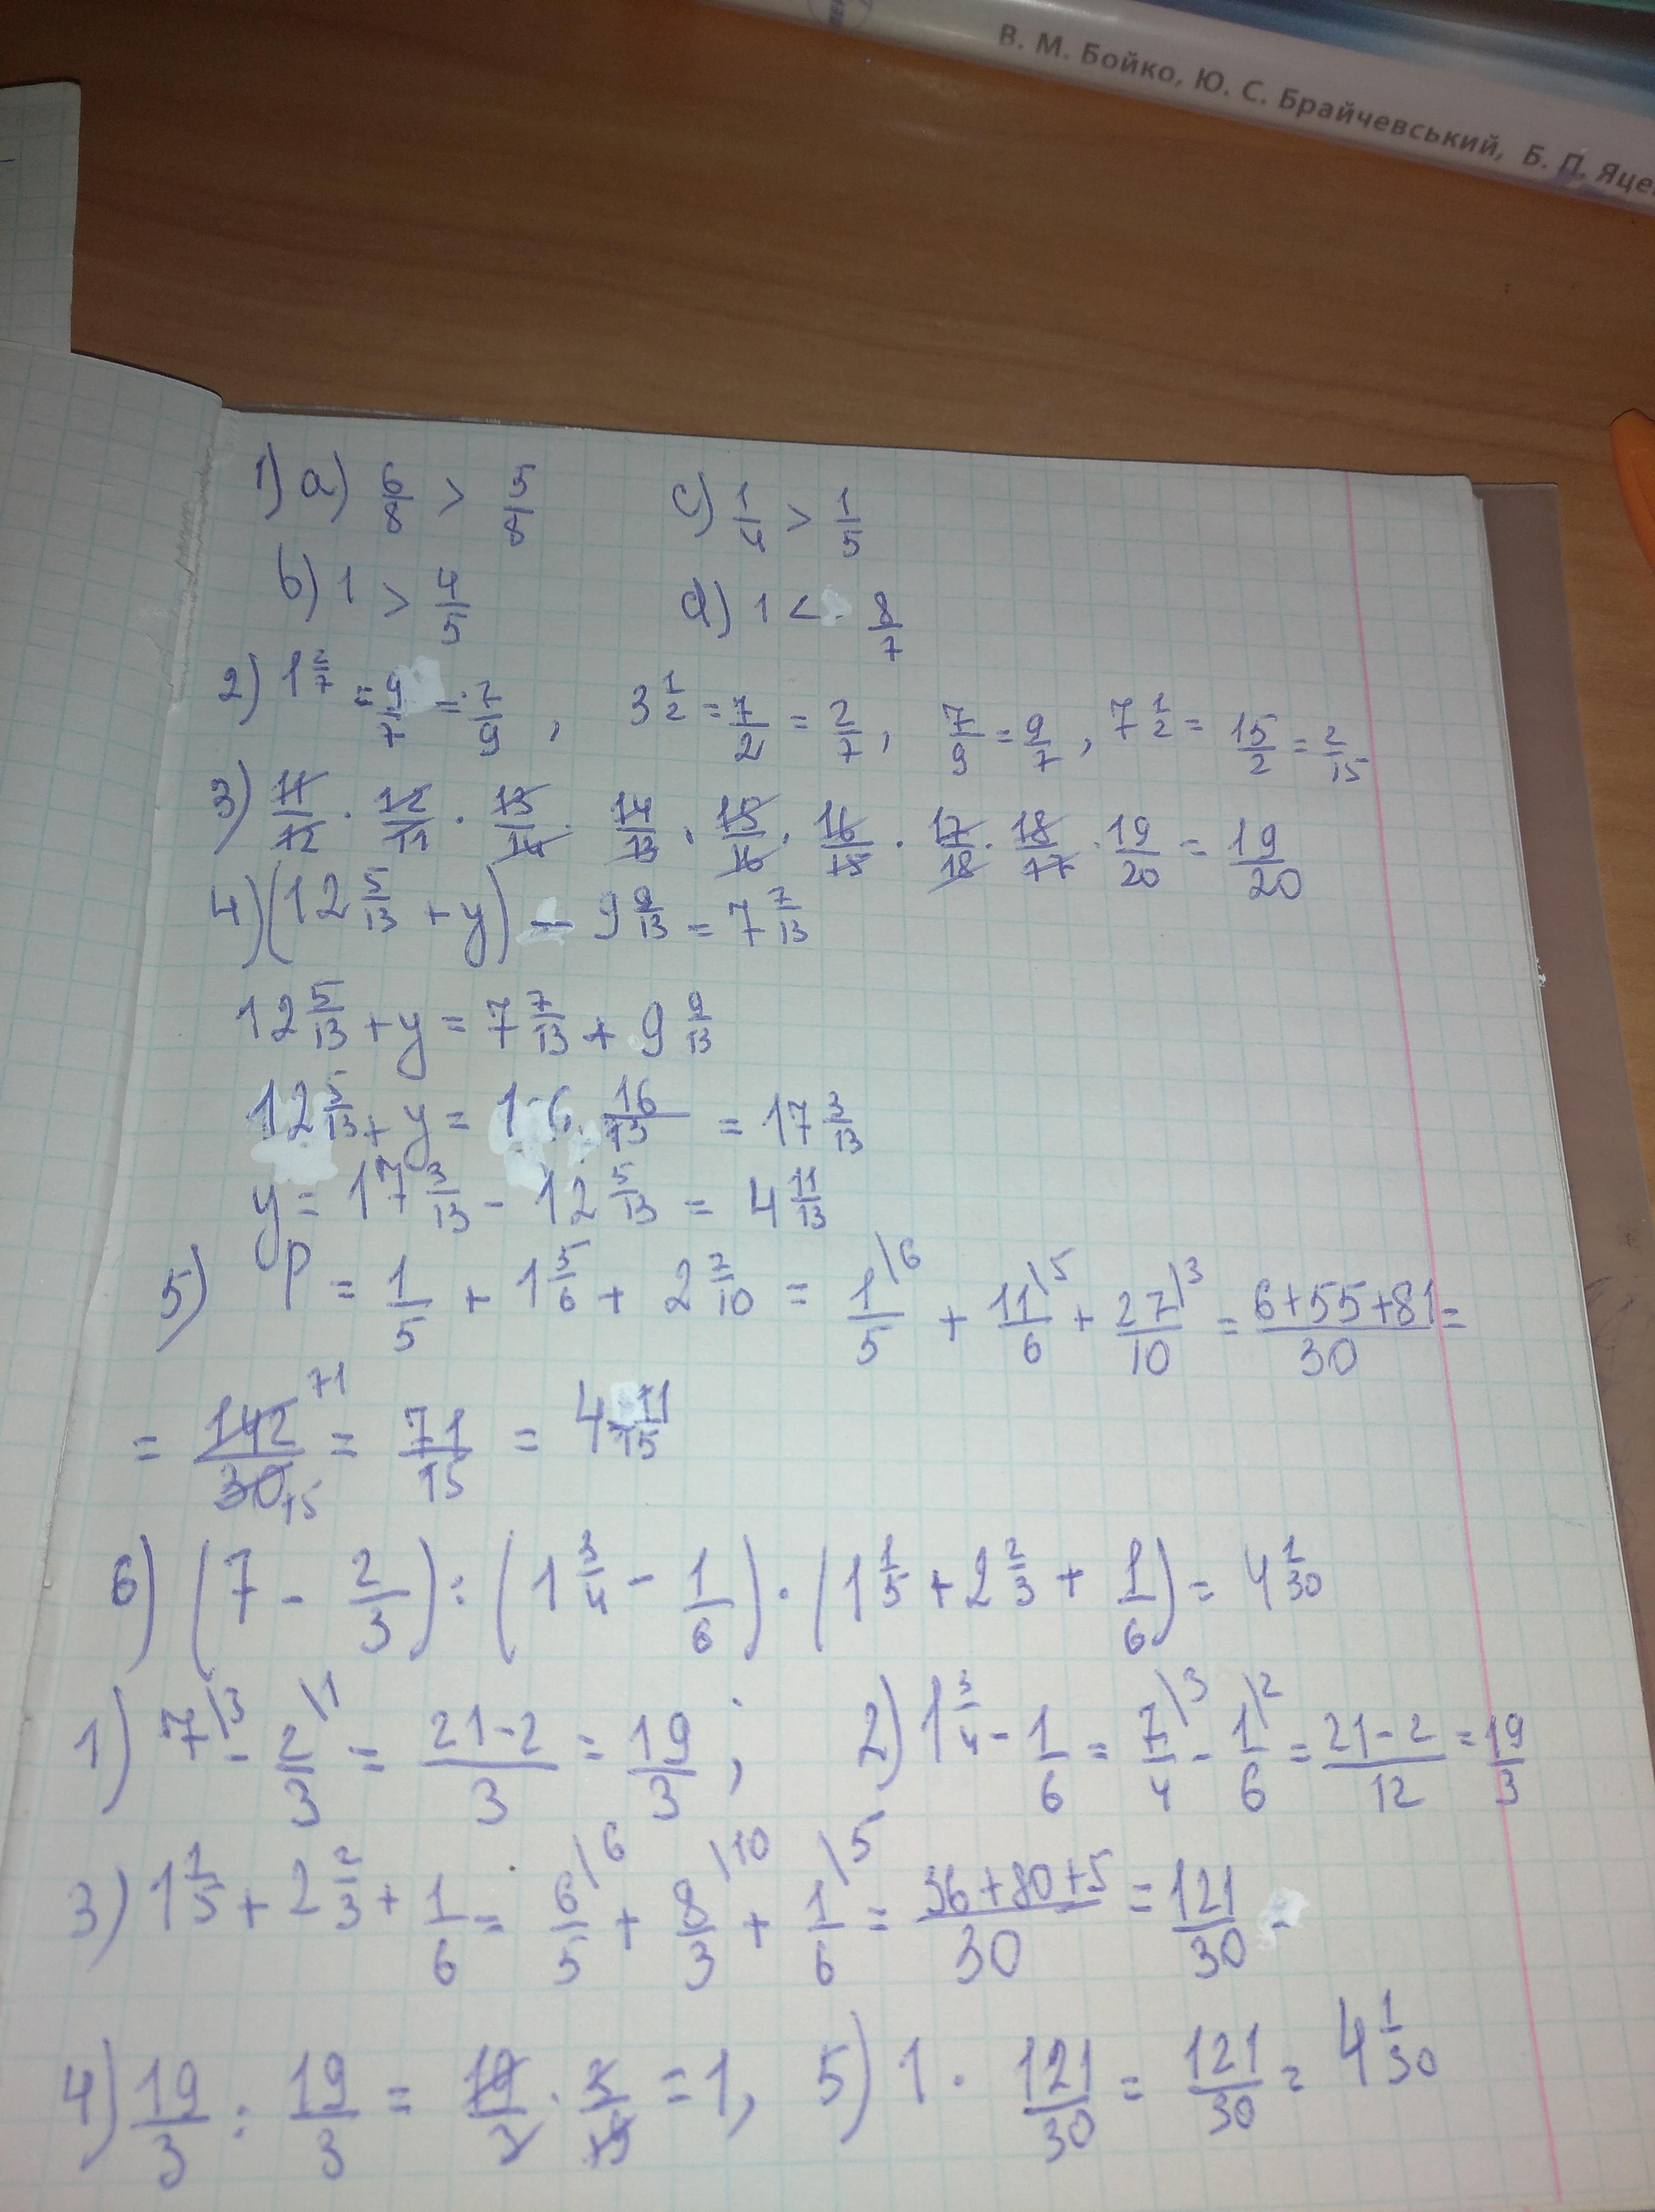 В. М. Бойко, Ю. С. Брайчевський, Б. П. Яце
1) a) 6/8 > 5/8 c) 1/4 > 1/5
b) 1 > 4/5 d) 1 < 8/7
2) 1 2/7 = 9/7 = 7/9, 3 1/2 = 7/2 = 2/7, 7/9 = 9/7, 7 1/2 = 15/2 = 2/15
· 19/20 = 19/20
4) (12 5/13 + y) - 9 9/13 = 7 7/13
12 5/13 + y = 7 7/13 + 9 9/13
12 5/13 + y = 16 16/13 = 17 3/13
y = 17 3/13 - 12 5/13 = 4 11/13
5) P = 1/5 + 1 5/6 + 2 7/10 = 1/5\6 + 11/6\5 + 27/10\3 = 6+55+81/30 =
= 142/30 71 15 = 71/15 = 4 11/15
6) (7 - 2/3) : (1 3/4 - 1/6) · (1 1/5 + 2 2/3 + 1/6) = 4 1/30
1) 7\3 - 2/3\1 = 21-2/3 = 19/3; 2) 1 3/4 - 1/6 = 7/4\3 - 1/6\2 = 21-2/12 = 19/3
3) 1 1/5 + 2 2/3 + 1/6 = 6/5\6 + 8/3\10 + 1/6\5 = 36+80+5/30 = 121/30
4) 19/3 : 19/3 = 19/3 · 3/19 = 1, 5) 1 · 121/30 = 121/30 = 4 1/30